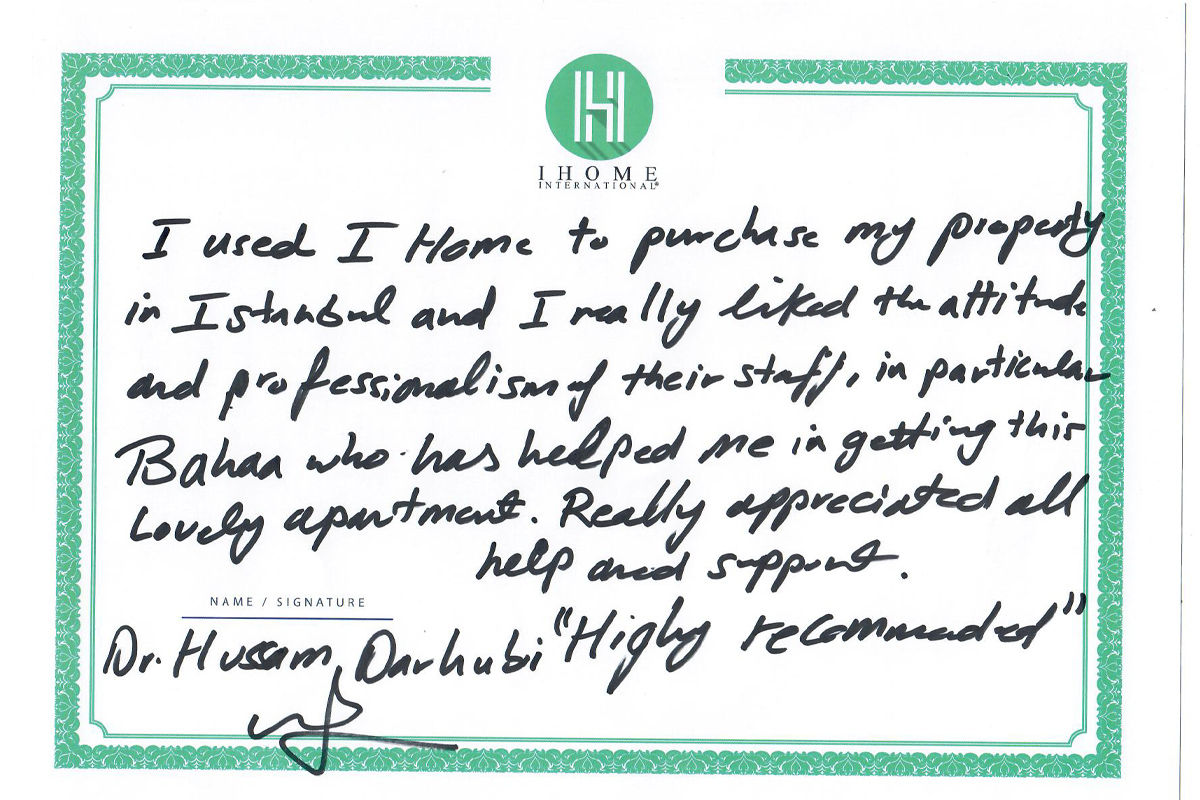 IHOME
INTERNATIONAL®
I used I Home to purchase my property
in Istanbul and I really liked the attitude
and professionalism of their staff, in particular
Bahaa who has helped me in getting this
Lovely apartment. Really appreciated all
help and support.
NAME / SIGNATURE
Dr. Hussam Darhubi "Highy recommended"